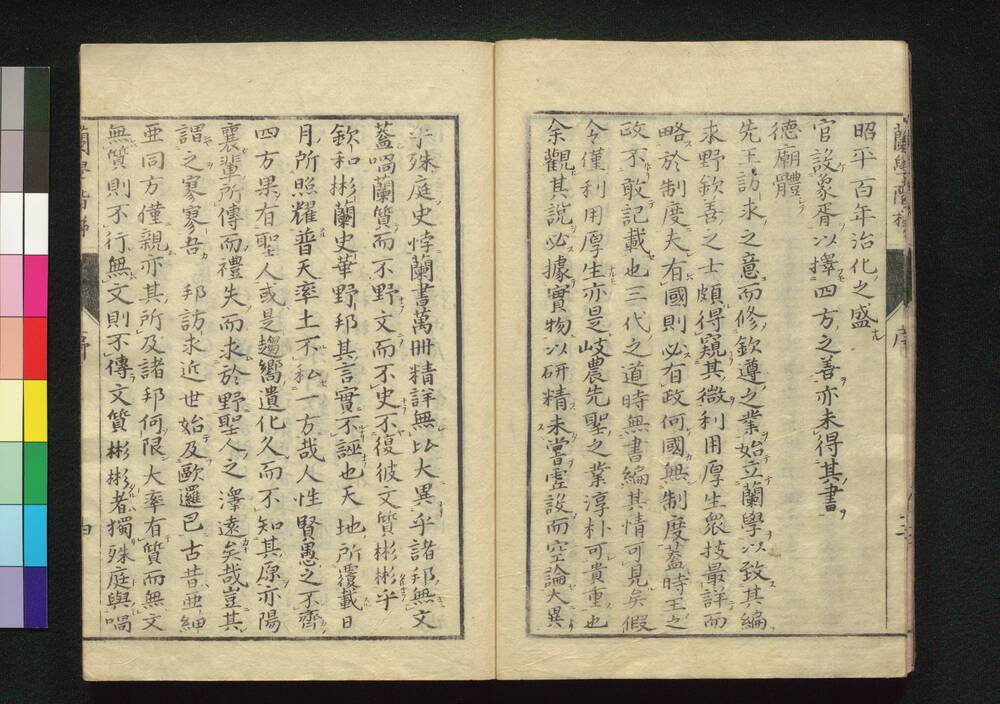 昭平百年治化之盛
官設象胥以擇四方之善亦未得其書
德廟體
先王訪求之意而修欽遵之業始立蘭學以致其編
求野欽善之士頗得窺其微利用厚生衆技最詳而
略於制度夫有國則必有政何國無制度蓋時王之
政不敢記載也三代之道時無書編其情可見矣假
令僅利用厚生亦是岐農先聖之業淳朴可貴重也
余觀其說必據實物以研精未嘗虛設而空論大異
乎殊庭史悖蘭書萬冊精詳無比大異乎諸邦無文
蓋喎蘭質而不野文而不史不復彼文質彬彬乎
欽和彬蘭史華野邦其言實不誣也天地所覆載日
月所照耀普天率土不私一方哉人性賢愚之不齊
四方果有聖人或是趨嚮遺化久而不知其原亦陽
襄輩所傳而禮失而求於野聖人之澤遠矣哉豈其
謂之寥寥吾邦訪求近世始及歐邏巴古昔亞細
亜同方僅親亦其所及諸邦何限大率有質而無文
無質則不行無文則不傳文質彬彬者獨殊庭與喎